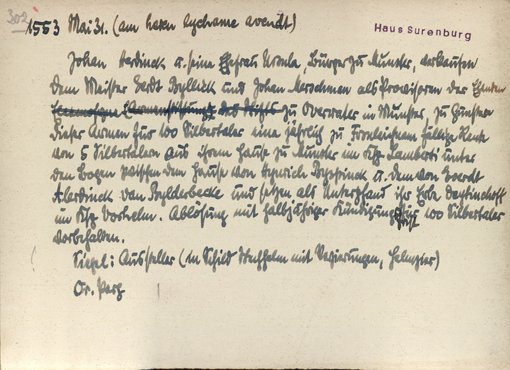 302
1553 Mai 31. (am hilgen lychrame avendt)
Haus Surenburg
Johan Kerdinck u. seine Ehefrau Ursula, Bürger zu Munster, verkaufen
dem Meister Gerdt und Johan als Provisoren der Elenden
zu Overwater in Münster, zu Gunsten
dieser Armen für 100 Silbertaler eine jährlich zu Fronleichnam fällige Rente
von 5 Silbertalern aus ihrem Hause zu Munster im Ksp. Lamberti unter
den Bogen zwischen dem Hause von u. dem von Evert
Alerdinck van Bylderbecke und setzen als Unterpfand ihr Erbe
im Ksp. Vorhelm. Ablösung mit halbjähriger Kündigung für 100 Silbertaler
vorbehalten.
Siegel: Aussteller (im Schild Stechhelm mit Verzierungen, Helmzier)
Or. Perg